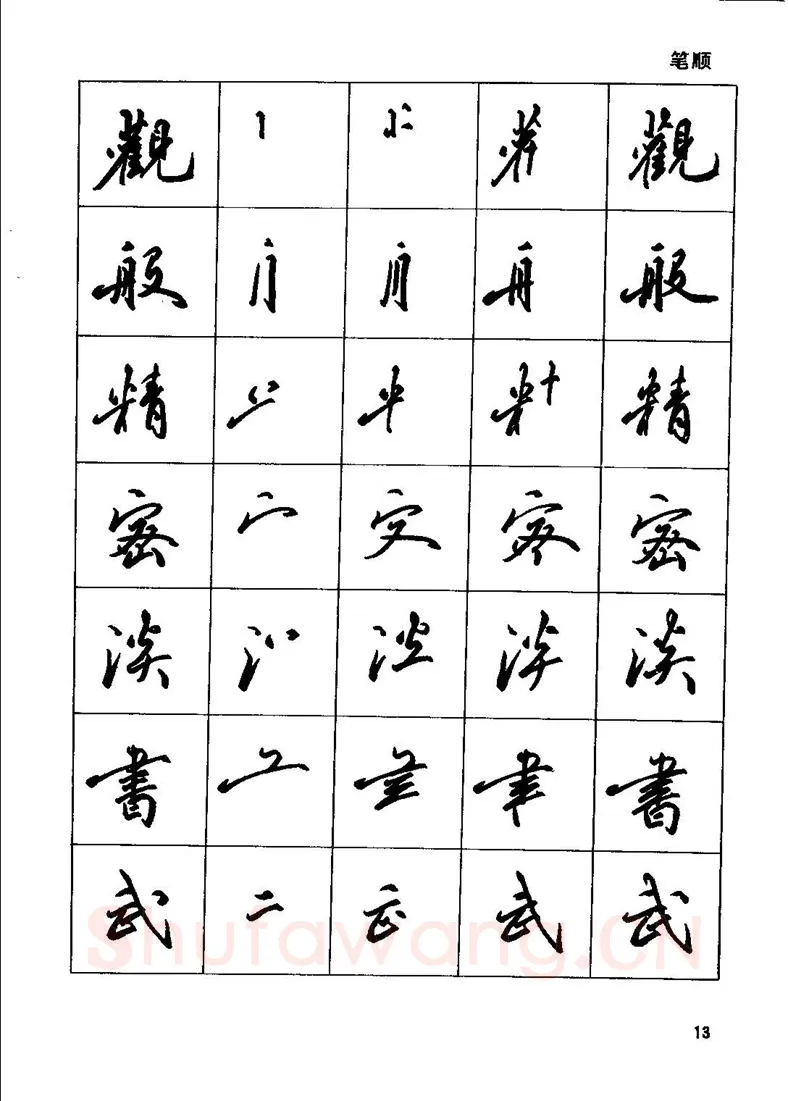 笔顺
觀 觀
般 般
精 精
密 密
淡 淡
書 書
武 二 武 武
Shufawang.CN
13